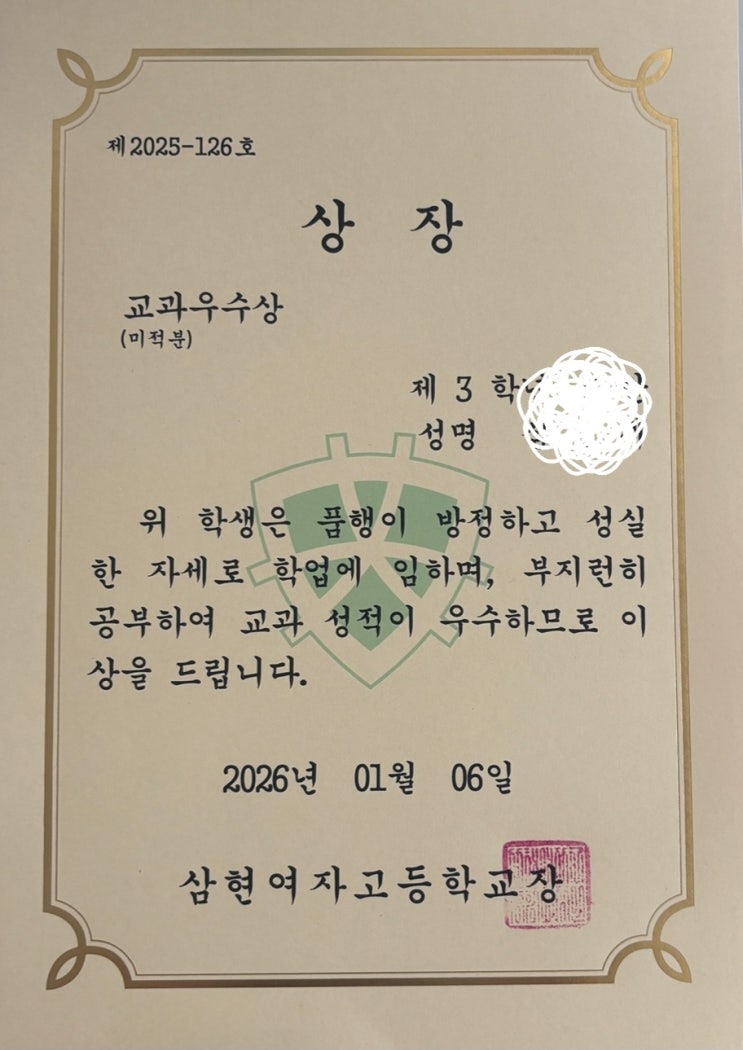 제2025-126호
상 장
교과우수상
(미적분)
제 3
성명
위 학생은 품행이 방정하고 성실
한 자세로 학업에 임하며, 부지런히
공부하여 교과 성적이 우수하므로 이
상을 드립니다.
2026년 01월 06일
삼현여자고등학교장